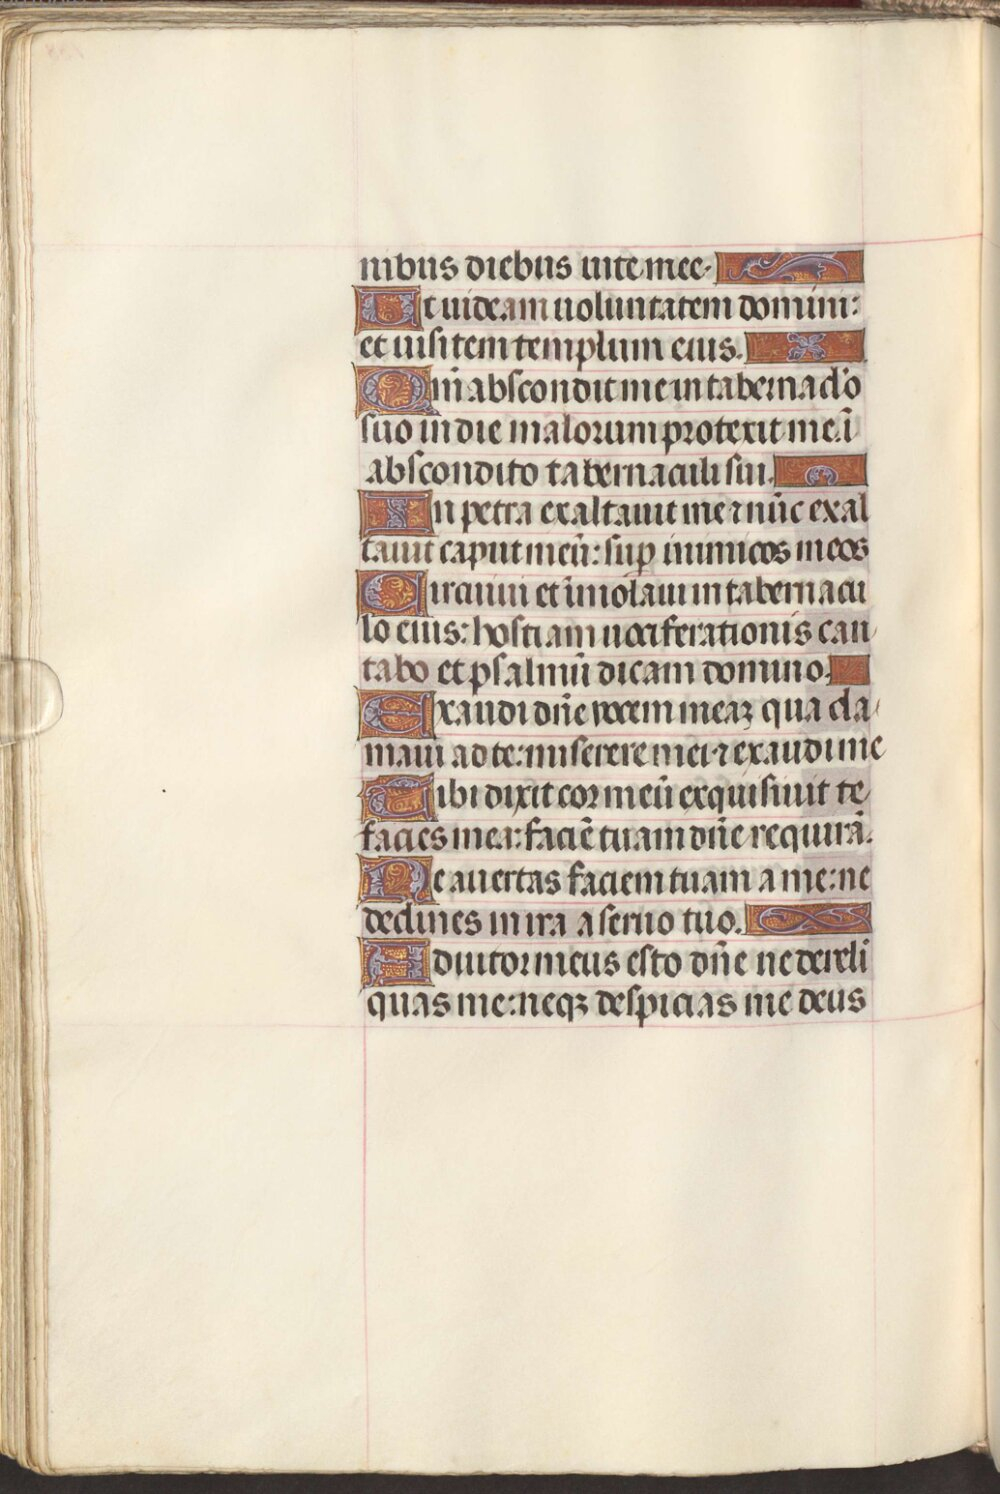 nibus diebus uite mee.
Et uideam uoluntatem domini:
et uisitem templum eius.
Qm̄ abscondit me in tabernaclo
suo in die malorum protexit me ī
abscondito tabernaculi sui.
In petra exaltauit me ⁊ nūc exal
tauit caput meū: sup inimicos meos
Circuiui et īmolaui in tabernacu
lo eius: hostiam uociferationis can
tabo et psalmū dicam domino.
Exaudi dn̄e uocem meaꝫ qua cla
maui ad te: miserere mei ⁊ exaudi me
Tibi dixit cor meū exquisiuit te
facies mea: faciē tuam dn̄e requirā.
Ne auertas faciem tuam a me: ne
declines in ira a seruo tuo.
Adiutor meus esto dn̄e ne dereli
quas me: neqꝫ despicias me deus